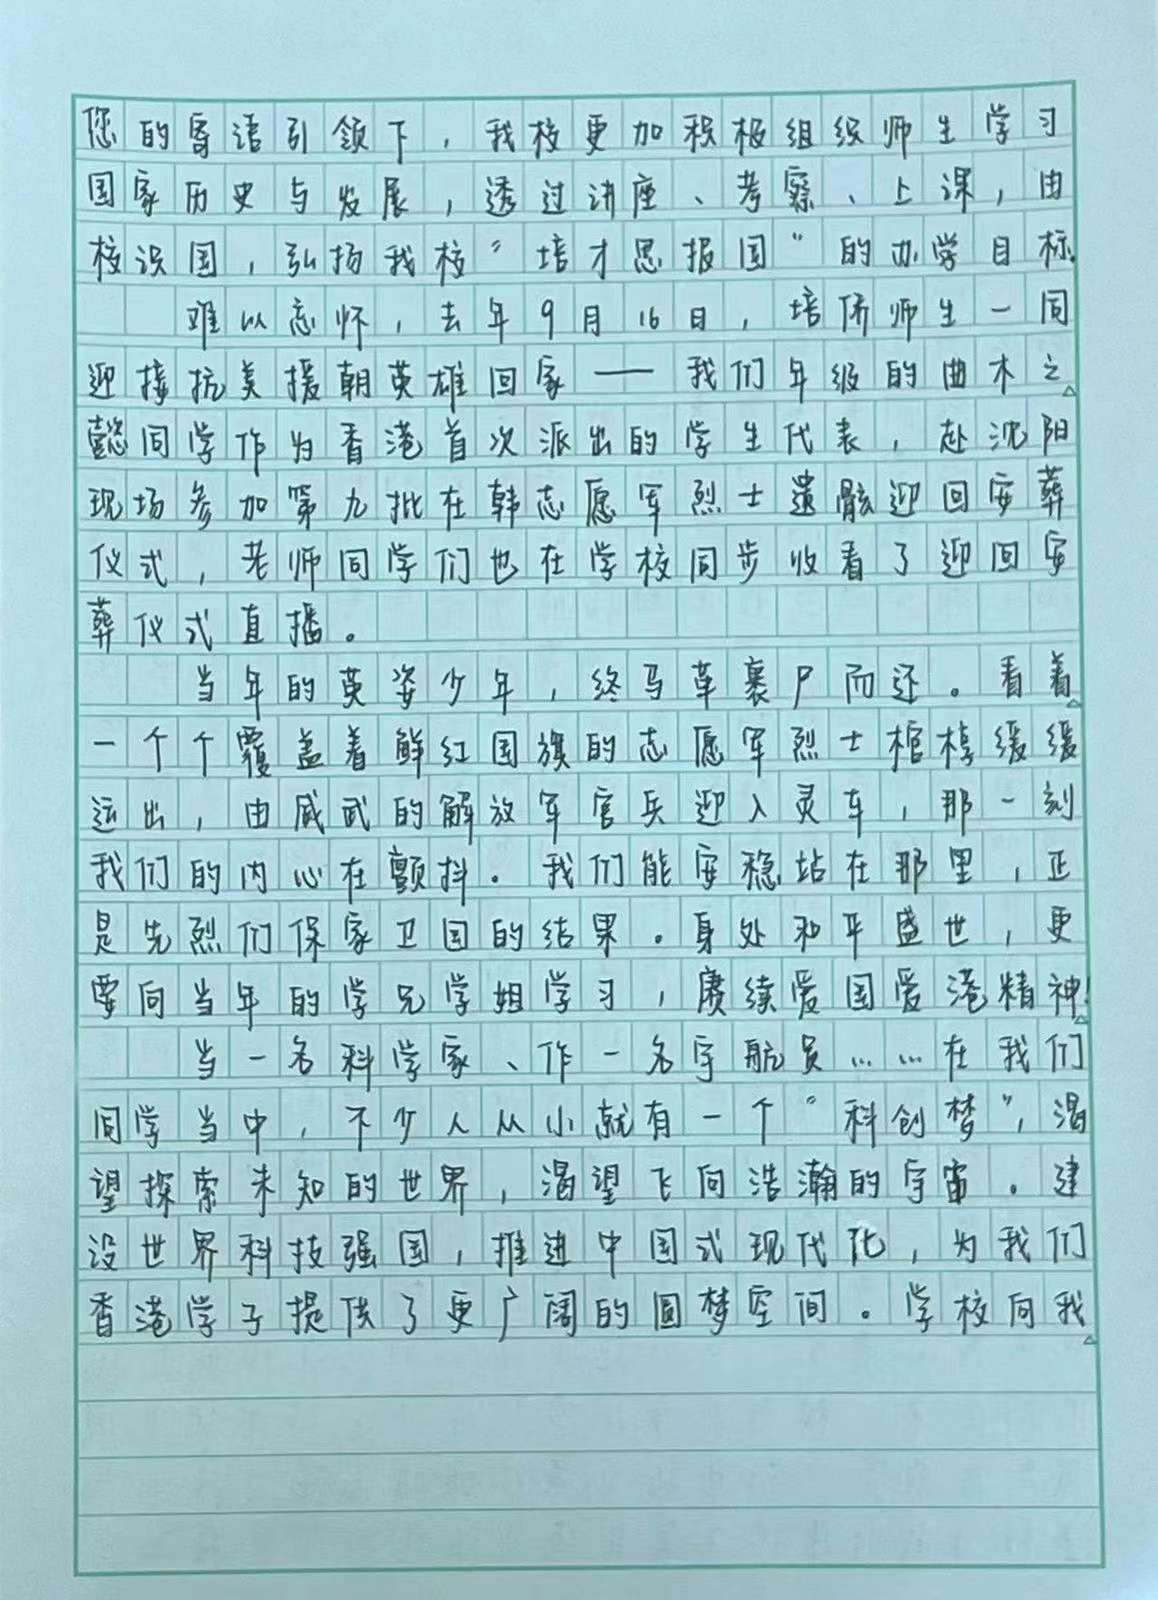 您的寄语引领下，我校更加积极组织师生学习
国家历史与发展，透过讲座、考察、上课，由
校识国，弘扬我校“培才思报国”的办学目标。
难以忘怀，去年9月16日，培侨师生一同
迎接抗美援朝英雄回家——我们年级的曲木之
懿同学作为香港首次派出的学生代表，赴沈阳
现场参加第九批在韩志愿军烈士遗骸迎回安葬
仪式，老师同学们也在学校同步收看了迎回安
葬仪式直播。
当年的英姿少年，终马革裹尸而还。看着
一个个覆盖着鲜红国旗的志愿军烈士棺椁缓缓
运出，由威武的解放军官兵迎入灵车，那一刻
我们的内心在颤抖。我们能安稳站在那里，正
是先烈们保家卫国的结果。身处和平盛世，更
要向当年的学兄学姐学习，赓续爱国爱港精神！
当一名科学家、作一名宇航员……在我们
同学当中，不少人从小就有一个“科创梦”，渴
望探索未知的世界，渴望飞向浩瀚的宇宙。建
设世界科技强国，推进中国式现代化，为我们
香港学子提供了更广阔的圆梦空间。学校向我